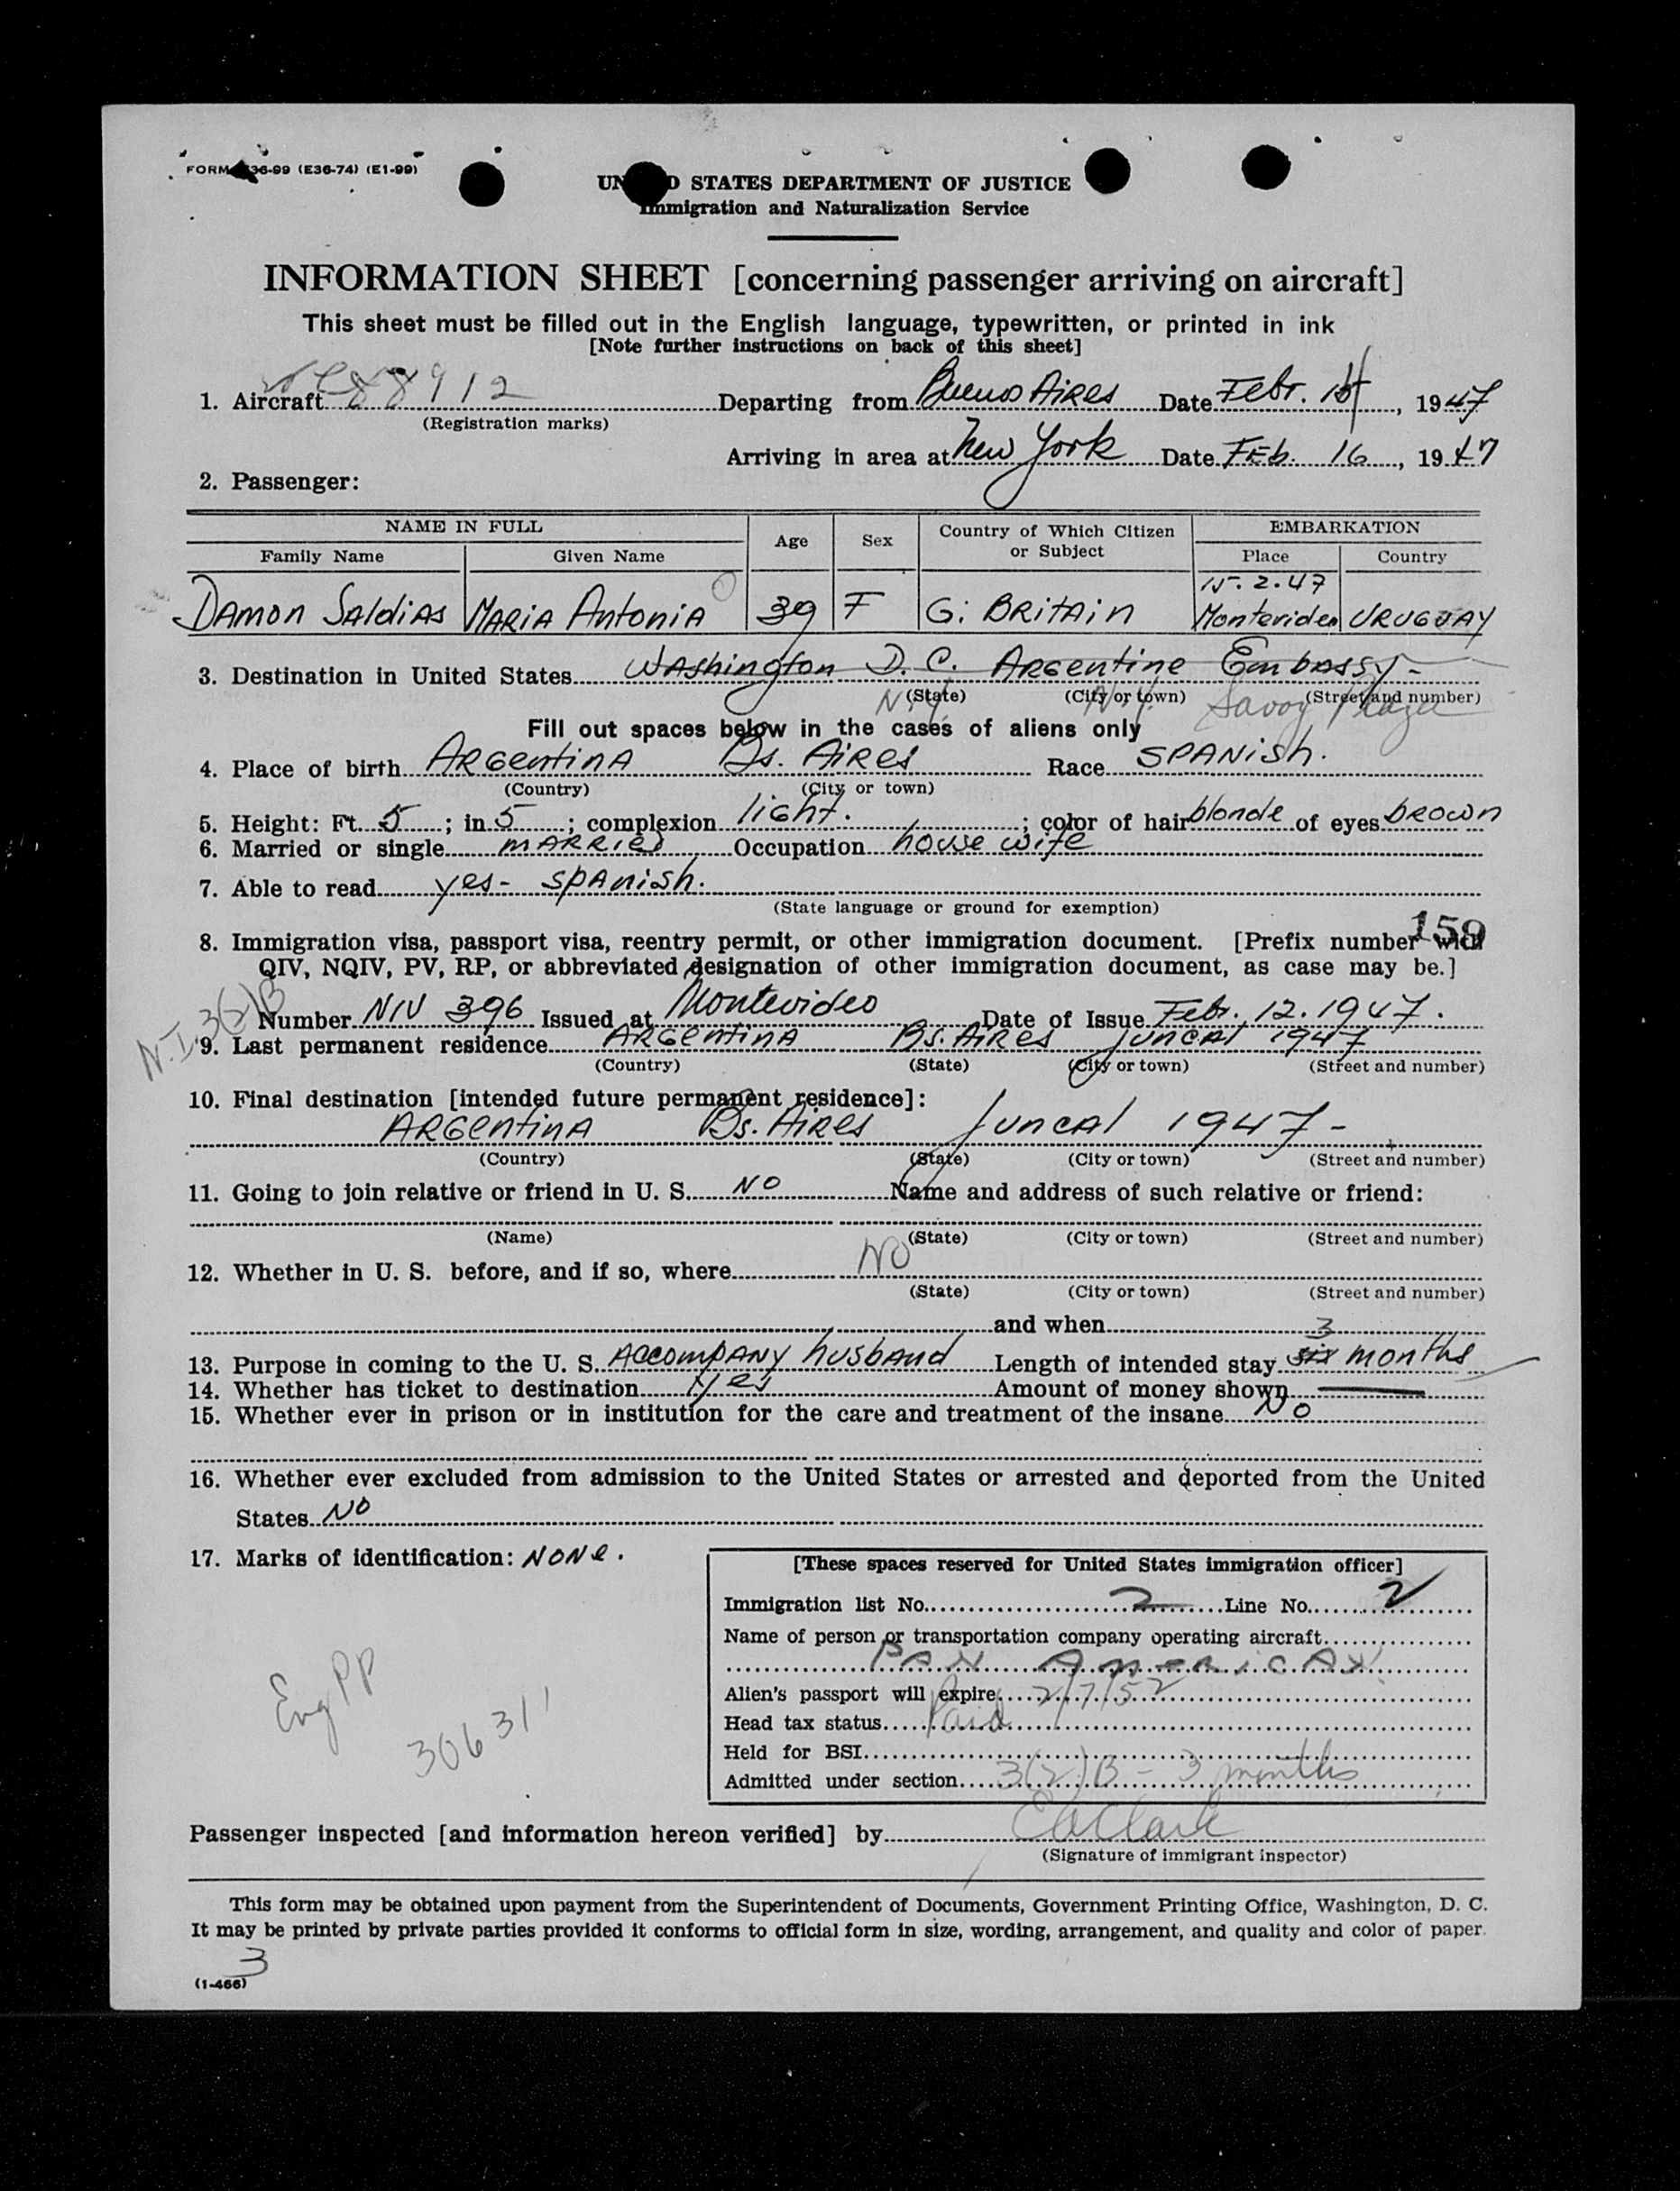 FORM 36-99 (E36-74) (E1-99)
UN D STATES DEPARTMENT OF JUSTICE
Immigration and Naturalization Service
INFORMATION SHEET [concerning passenger arriving on aircraft]
This sheet must be filled out in the English language, typewritten, or printed in ink
[Note further instructions on back of this sheet]
1. Aircraft NC88912 Departing from Buenos Aires Date Febr. 15, 1947
(Registration marks)
Arriving in area at New York Date FEb. 16, 1947
2. Passenger:
NAME IN FULL Age Sex Country of Which Citizen or Subject EMBARKATION
Family Name Given Name Place Country
15.2.47
DAMON SALdiAS MARiA AntoniA 39 F G. BRitAin Montevideo URUGUAY
3. Destination in United States WAshington D.C. ARGentine EmbAssy-
(State) (City or town) (Street and number)
N.Y. N.Y. Savoy Plaza
Fill out spaces below in the cases of aliens only
4. Place of birth ARGentinA Bs. AiRes Race SPANish.
(Country) (City or town)
5. Height: Ft. 5; in. 5; complexion light.; color of hair blonde of eyes bRown
6. Married or single mARRied Occupation house wife
7. Able to read yes- spAnish.
(State language or ground for exemption)
159
8. Immigration visa, passport visa, reentry permit, or other immigration document. [Prefix number with
QIV, NQIV, PV, RP, or abbreviated designation of other immigration document, as case may be.]
N.I. 3(2)B
Number NIV 396 Issued at Montevideo Date of Issue Febr. 12.1947.
9. Last permanent residence ARGentinA Bs. AiRes JuncAl 1947
(Country) (State) (City or town) (Street and number)
10. Final destination [intended future permanent residence]:
ARGentinA Bs. AiRes JuncAl 1947-
(Country) (State) (City or town) (Street and number)
11. Going to join relative or friend in U. S. NO Name and address of such relative or friend:
(Name) (State) (City or town) (Street and number)
12. Whether in U. S. before, and if so, where NO
(State) (City or town) (Street and number)
and when
3
13. Purpose in coming to the U. S. AccompANy husbAnd Length of intended stay six months
14. Whether has ticket to destination yes Amount of money shown —
15. Whether ever in prison or in institution for the care and treatment of the insane No
16. Whether ever excluded from admission to the United States or arrested and deported from the United
States No
17. Marks of identification: NONe.
[These spaces reserved for United States immigration officer]
Immigration list No. 2 Line No. 2
Name of person or transportation company operating aircraft
PAN AMERICAN
Alien's passport will expire 2/7/52
Head tax status Paid
Held for BSI
Admitted under section 3(2)B - 3 months
Eng PP
306311
Passenger inspected [and information hereon verified] by EAClark
(Signature of immigrant inspector)
This form may be obtained upon payment from the Superintendent of Documents, Government Printing Office, Washington, D. C.
It may be printed by private parties provided it conforms to official form in size, wording, arrangement, and quality and color of paper.
3
(1-466)